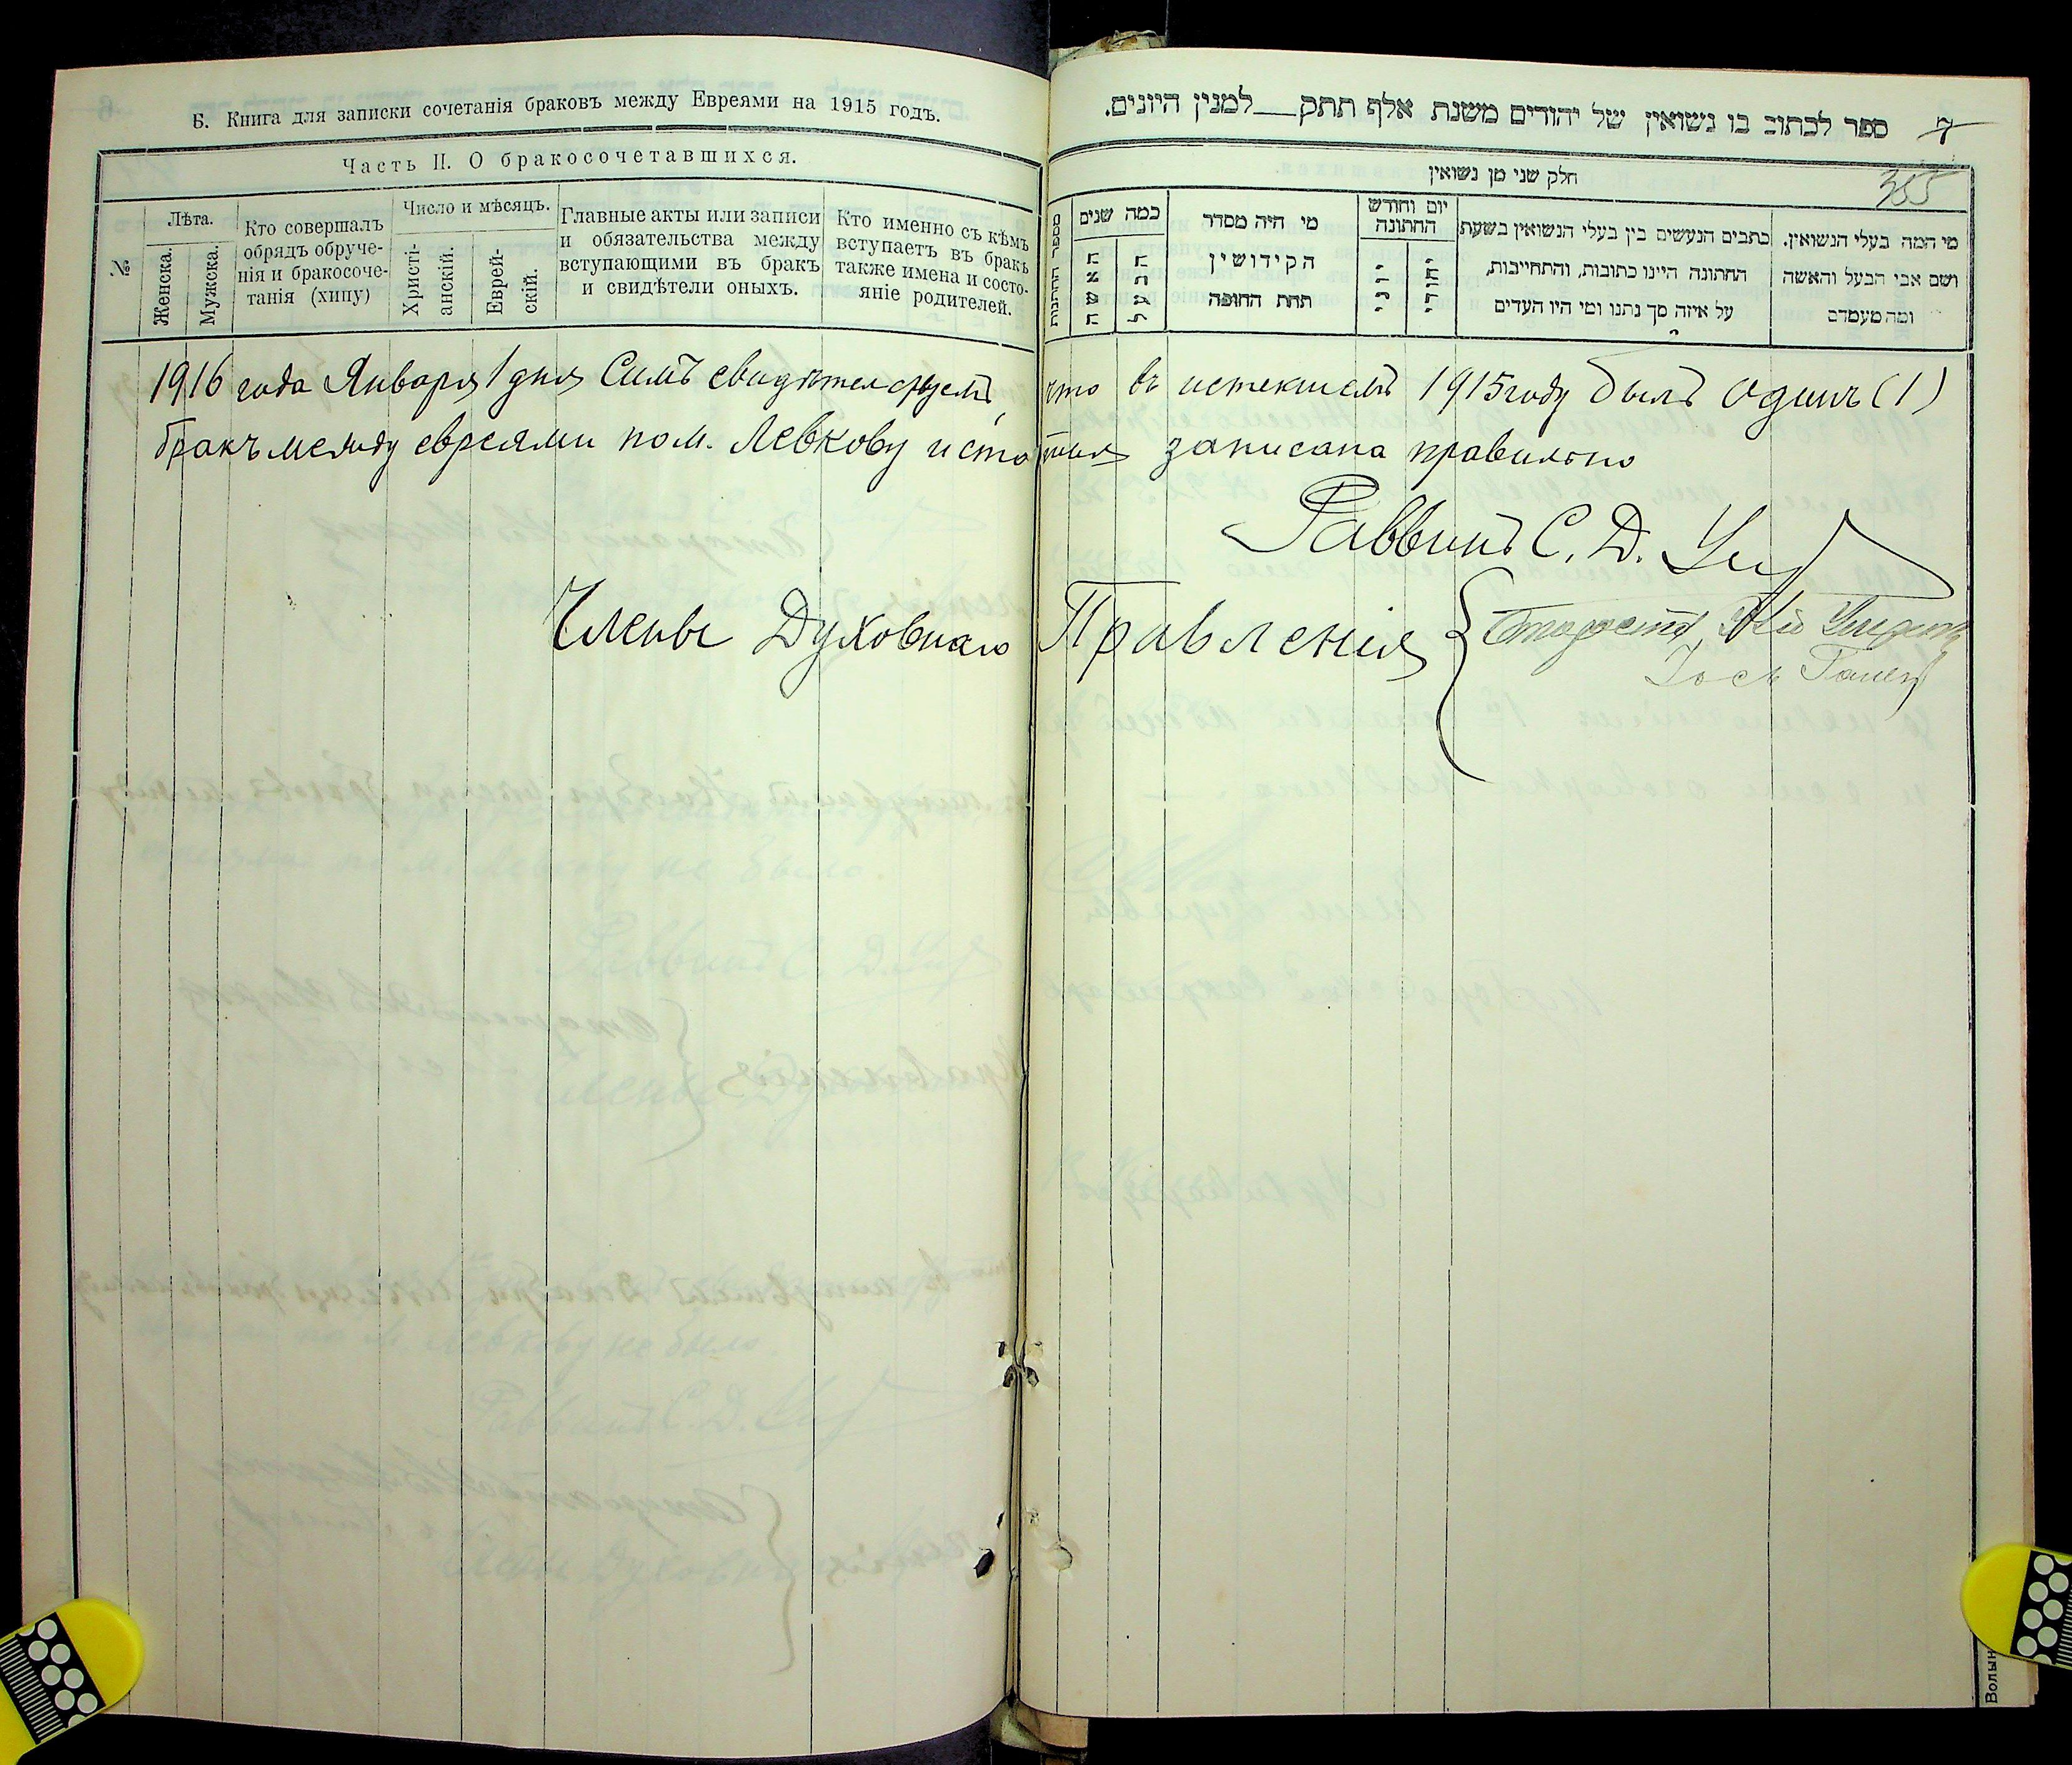 Б. Книга для записки сочетанія браковъ между Евреями на 1915 годъ.
Часть II. О бракосочетавшихся.
№
Лѣта.
Женска.
Мужска.
Кто совершалъ
обрядъ обруче-
нія и бракосоче-
танія (хипу)
Число и мѣсяцъ.
Христі-
анскій.
Еврей-
скій.
Главные акты или записи
и обязательства между
вступающими въ бракъ
и свидѣтели оныхъ.
Кто именно съ кѣмъ
вступаетъ въ бракъ
также имена и состо-
яніе родителей.
ספר לכתוב בו נשואין של יהודים משנת אלף תתק___למנין היונים.
7
חלק שני מן נשואין
385
מספר החתונות
כמה שנים
האשה
הבעל
מי היה מסדר
הקידושין
תחת החופה
יום וחודש
החתונה
כתבים הנעשים בין בעלי הנשואין בשעת
החתונה היינו כתובות, והתחייבות,
על איזה סך נתנו ומי היו העדים
מי המה בעלי הנשואין.
ושם אבי הבעל והאשה
ומה מעמדם
1916 года Января 1 дня Симъ свидѣтельствуемъ, что въ истекшемъ 1915 году былъ одинъ (1)
бракъ между евреями по м. Левкову и статья записана правильно
Раввинъ С. Д.
Члены Духовнаго Правленія { Староста
Іось
Волын